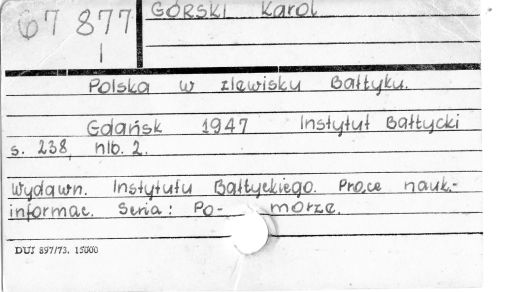 67877
I
GÓRSKI Karol
Polska w zlewisku Bałtyku.
Gdańsk 1947 Instytut Bałtycki
s. 238, nlb. 2.
Wydawn. Instytutu Bałtyckiego. Prace nauk.-
informac. Seria: Po- morze.
DUJ 897/73. 15000